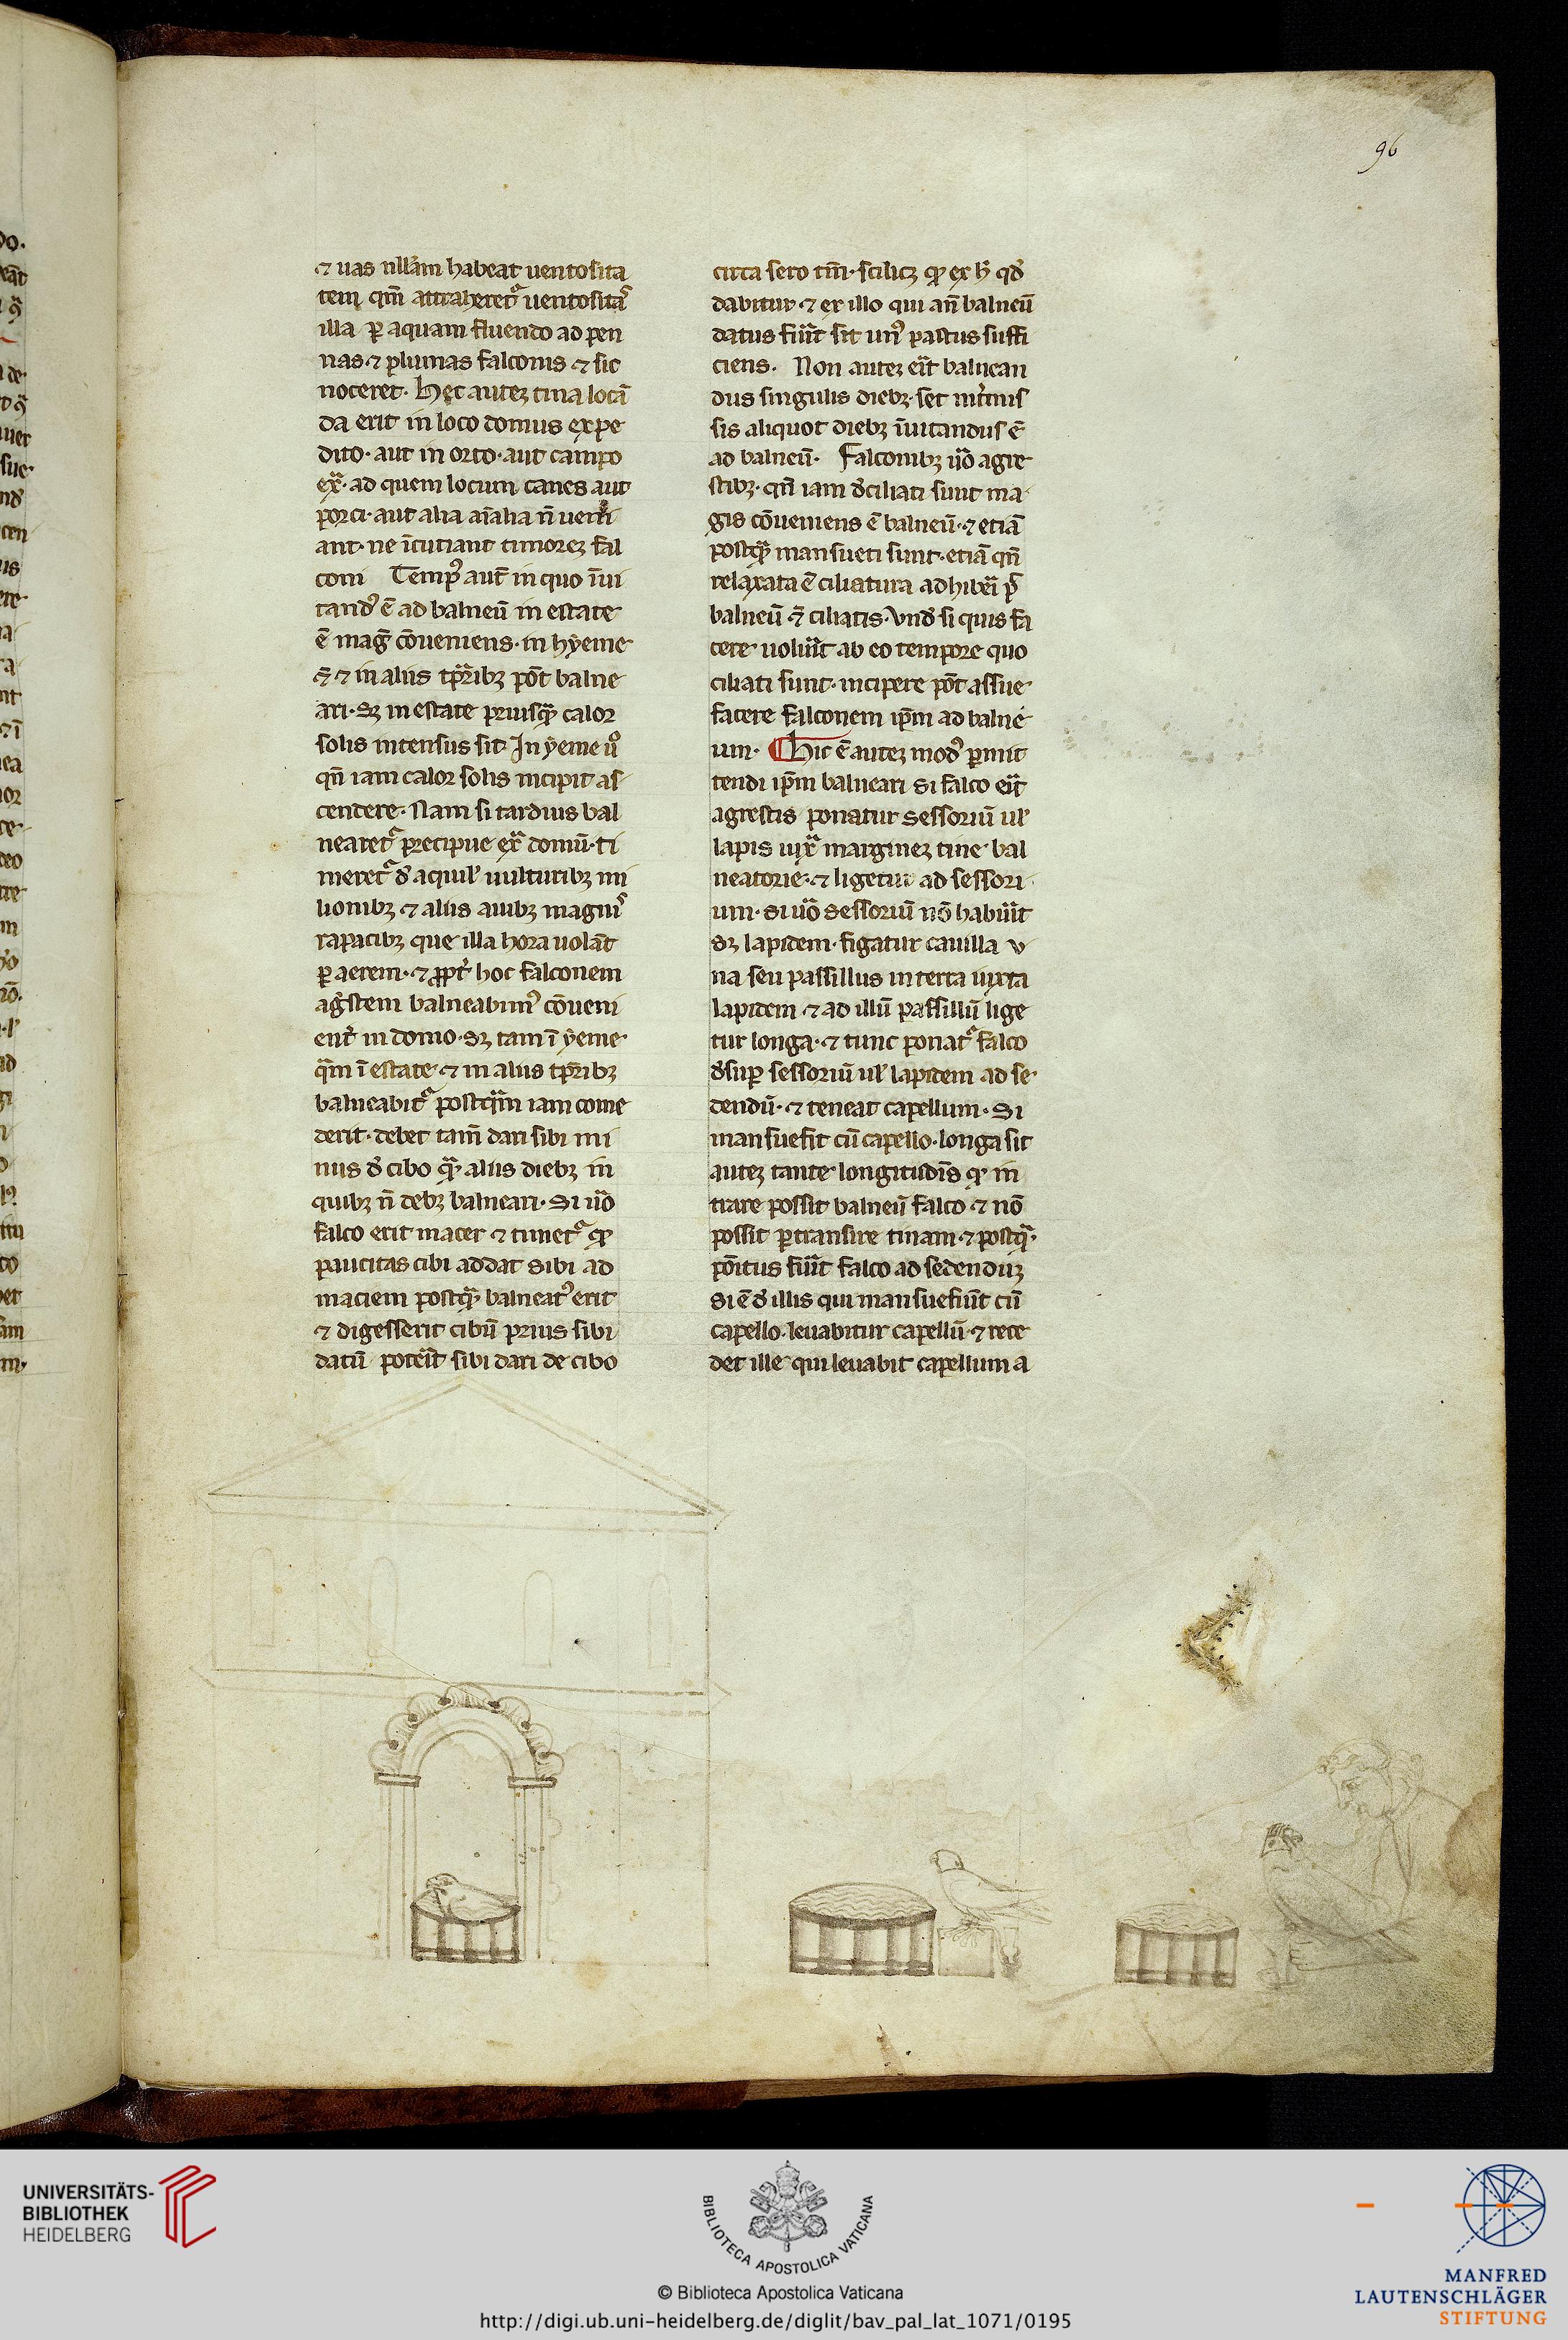 96
⁊ uas nllam habeat uentosita
tem qm̄ attraheret᷑ uentositas
illa ꝑ aquam fluendo ad pen
nas ⁊ plumas falconis ⁊ sic
noceret. Hec auteꝫ tina locā
da erit in loco domus expe
dito. aut in orto. aut campo
ext̄. ad quem locum canes aut
porci. aut alia aīalia n̄ ueni
ant. ne īcutiant timoreꝫ fal
coni Tempꝰ aut̄ in quo īui
tandꝰ ē ad balneū in estate
ē maḡ cōueniens. in hyeme
⁊ in aliis tꝑ̄ribꝫ pōt balne
ari. sꝫ in estate priusqᷓ calor
solis intensus sit In yeme uͦ
qn̄ iam calor solis incipit as
cendere. Nam si tardius bal
nearet᷑ precipue ext̄ domū. ti
meret᷑ ꝺ̄ aquil̓ uulturibꝫ mi
luonibꝫ ⁊ aliis auibꝫ magnis
rapacibꝫ que illa hora uolāt
ꝑ aerem. ⁊ ꝓpt̄ hoc falconem
agrͥstem balneabimꝰ cōueni
ent̓ in domo. sꝫ tam ī yeme
qᷓm ī estate ⁊ in aliis tꝑ̄ribꝫ
balneabit᷑ postqᷓm iam come
derit. debet tam̄ dari sibi mi
nus ꝺ̄ cibo qᷓ aliis diebꝫ in
quibꝫ n̄ debꝫ balneari. Si uͦo
falco erit macer ⁊ timet᷑ ꝙ
paucitas cibi addat sibi ad
maciem postqᷓ balneatꝰ erit
⁊ digesserit cibū prius sibi
datū poterit̄ sibi dari de cibo
circa sero tm̄. scilicꝫ ꝙ ex h̓ qꝺ̄
dabitur ⁊ ex illo qui an̄ balneū
datus fūit sit unꝰ pastus suffi
ciens. Non auteꝫ erit̄ balnean
dus singulis diebꝫ. set int̓mis
sis aliquot diebꝫ īuitandus ē
ad balneū. Falconibꝫ uͦo agre
stibꝫ. qn̄ iam ꝺ̄ciliati sunt ma
gis cōueniens ē balneū. ⁊ etiā
postqᷓ mansueti sunt. etiā qn̄
relaxata ē ciliatura adhiberi pͭ
balneū ⁊ ciliatis. Vnꝺ̄ si quis fa
cere uolūit ab eo tempore quo
ciliati sunt. incipere pōt assue
facere falconem ip̄m ad balne
um. Hic ē auteꝫ modꝰ ꝑmit
tendi ip̄m balneari si falco erit̄
agrestis ponatur sessoriū ul̓
lapis iuxᷓ margineꝫ tine bal
neatorie. ⁊ ligetur ad sessori
um. Si uͦo sessoriū nō habūit
sꝫ lapidem. figatur cauilla v
na seu passillus in terra iuxta
lapidem ⁊ ad illū passillū lige
tur longa. ⁊ tunc ponat᷑ falco
ꝺ̄suꝑ sessoriū ul̓ lapidem ad se
dendū. ⁊ teneat capellum. Si
mansuefit cū capello. longa sit
auteꝫ tante longitudīs ꝙ in
trare possit balneū falco ⁊ nō
possit ꝑtransire tinam ⁊ postqᷓ
pōitus fūit falco ad sedenduꝫ
si ē ꝺ̄ illis qui mansuefiūt cū
capello. leuabitur capellū ⁊ rece
det ille qui leuabit capellum a
UNIVERSITÄTS-
BIBLIOTHEK
HEIDELBERG
BIBLIOTECA APOSTOLICA VATICANA
© Biblioteca Apostolica Vaticana
http://digi.ub.uni-heidelberg.de/diglit/bav_pal_lat_1071/0195
MANFRED
LAUTENSCHLÄGER
STIFTUNG